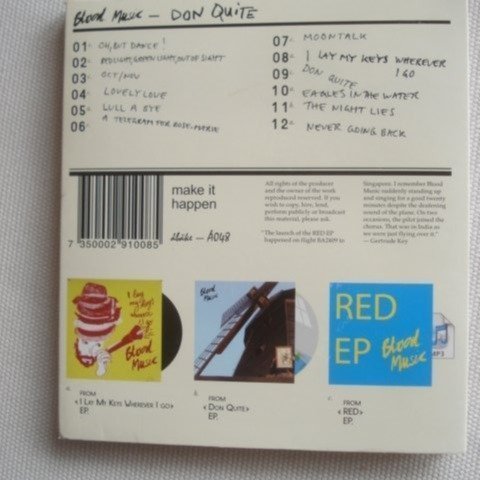 Blood Music – DON QUiTE
01 a. OH, BUT DANCE!
02 REDLIGHT, GREEN LIGHT, OUT OF SIGHT
03 c. OCT/NOV
04 LOVELY LOVE
05 LULL A BYE
06 a. A TELEGRAM FOR ROSE-MARIE
07 c. MOONTALK
08 a. I LAY MY KEYS WHEREVER I GO
09 DON QUITE
10 EAGLES IN THE WATER
11 THE NIGHT LIES
12 c. NEVER GOING BACK
7 350002 910085
make it
happen
A048
All rights of the producer
and the owner of the work
reproduced reserved. If you
wish to copy, hire, lend,
perform publicly or broadcast
this material, please ask.
"The launch of the RED EP
happened on flight BA2809 to
Singapore. I remember Blood
Music suddenly standing up
and singing for a good twenty
minutes despite the deafening
sound of the plane. On two
occasions, the pilot joined the
chorus. That was in India as
we were just flying over it."
— Gertrude Key
I lay
my keys
wherever
I go
Blood
Music
Blood
Music
RED
EP Blood
Music
MP3
a.
FROM
‹I LAY MY KEYS WHEREVER I GO›
EP.
b.
FROM
‹DON QUITE›
EP.
c.
FROM
‹RED›
EP.